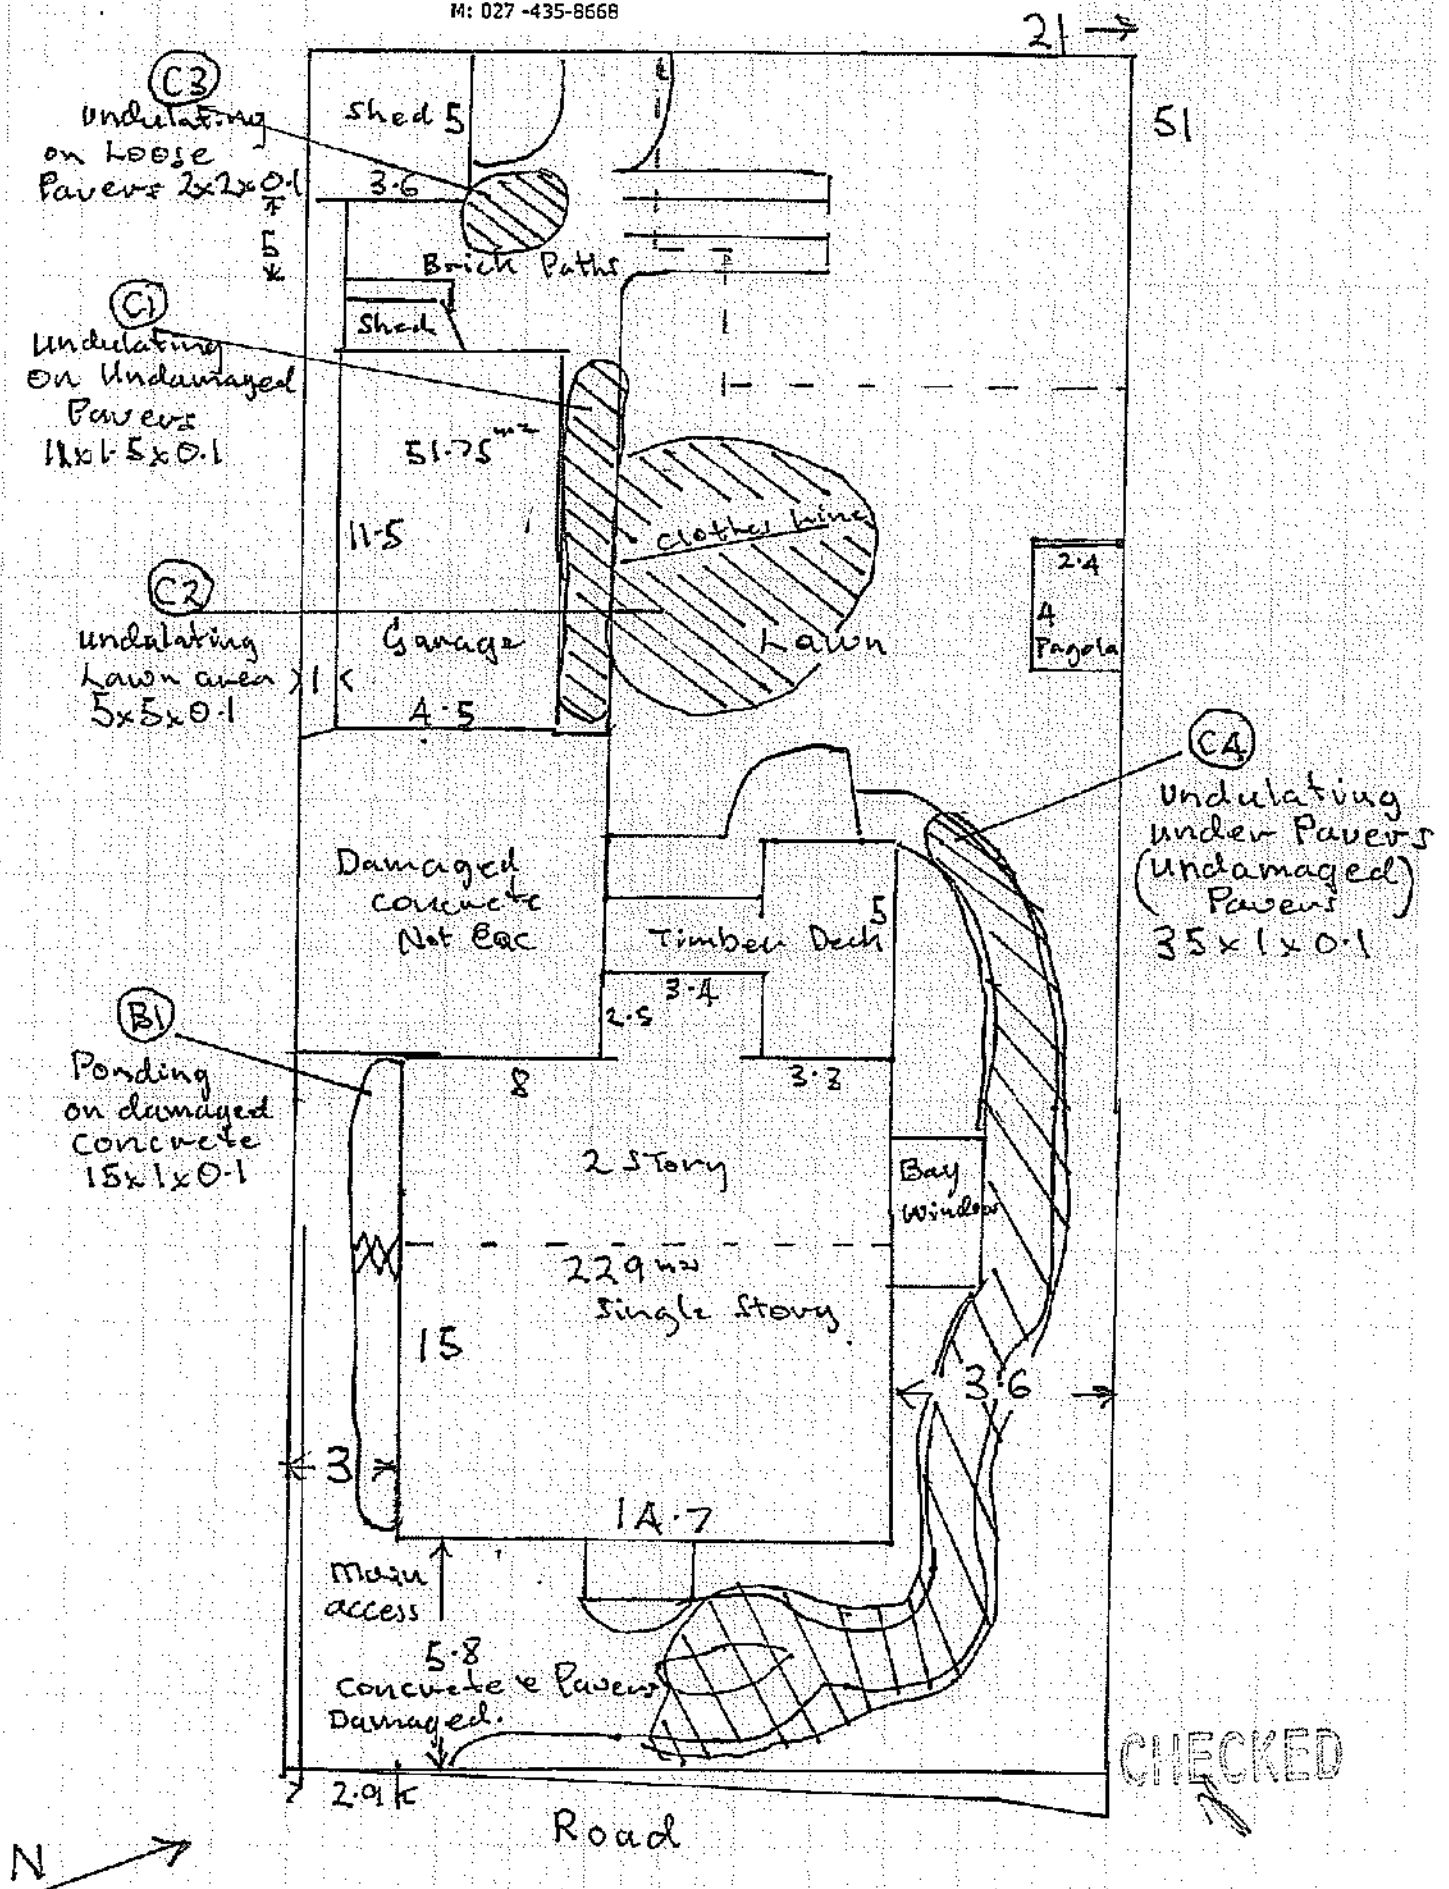 M: 027 -435-8668
21
51
C3
undulating
on Loose
Pavers 2x2x0.1
Shed 5
3.6
5
Brick Paths
Shed
C1
undulating
on Undamaged
Pavers
11x1.5x0.1
51.75 m2
11.5
Clothes Line
2.4
4
Pagola
C2
undulating
Lawn area
5x5x0.1
1
Garage
4.5
Lawn
C4
undulating
under Pavers
(undamaged)
Pavers
35x1x0.1
Damaged
concrete
Not EQC
5
Timber Deck
3.4
2.5
8
3.3
B1
Ponding
on damaged
concrete
15x1x0.1
2 Story
Bay
Window
229 m2
Single Story
15
3.6
3
14.7
Main
access
5.8
Concrete & Pavers
Damaged.
CHECKED
2.91
Road
N